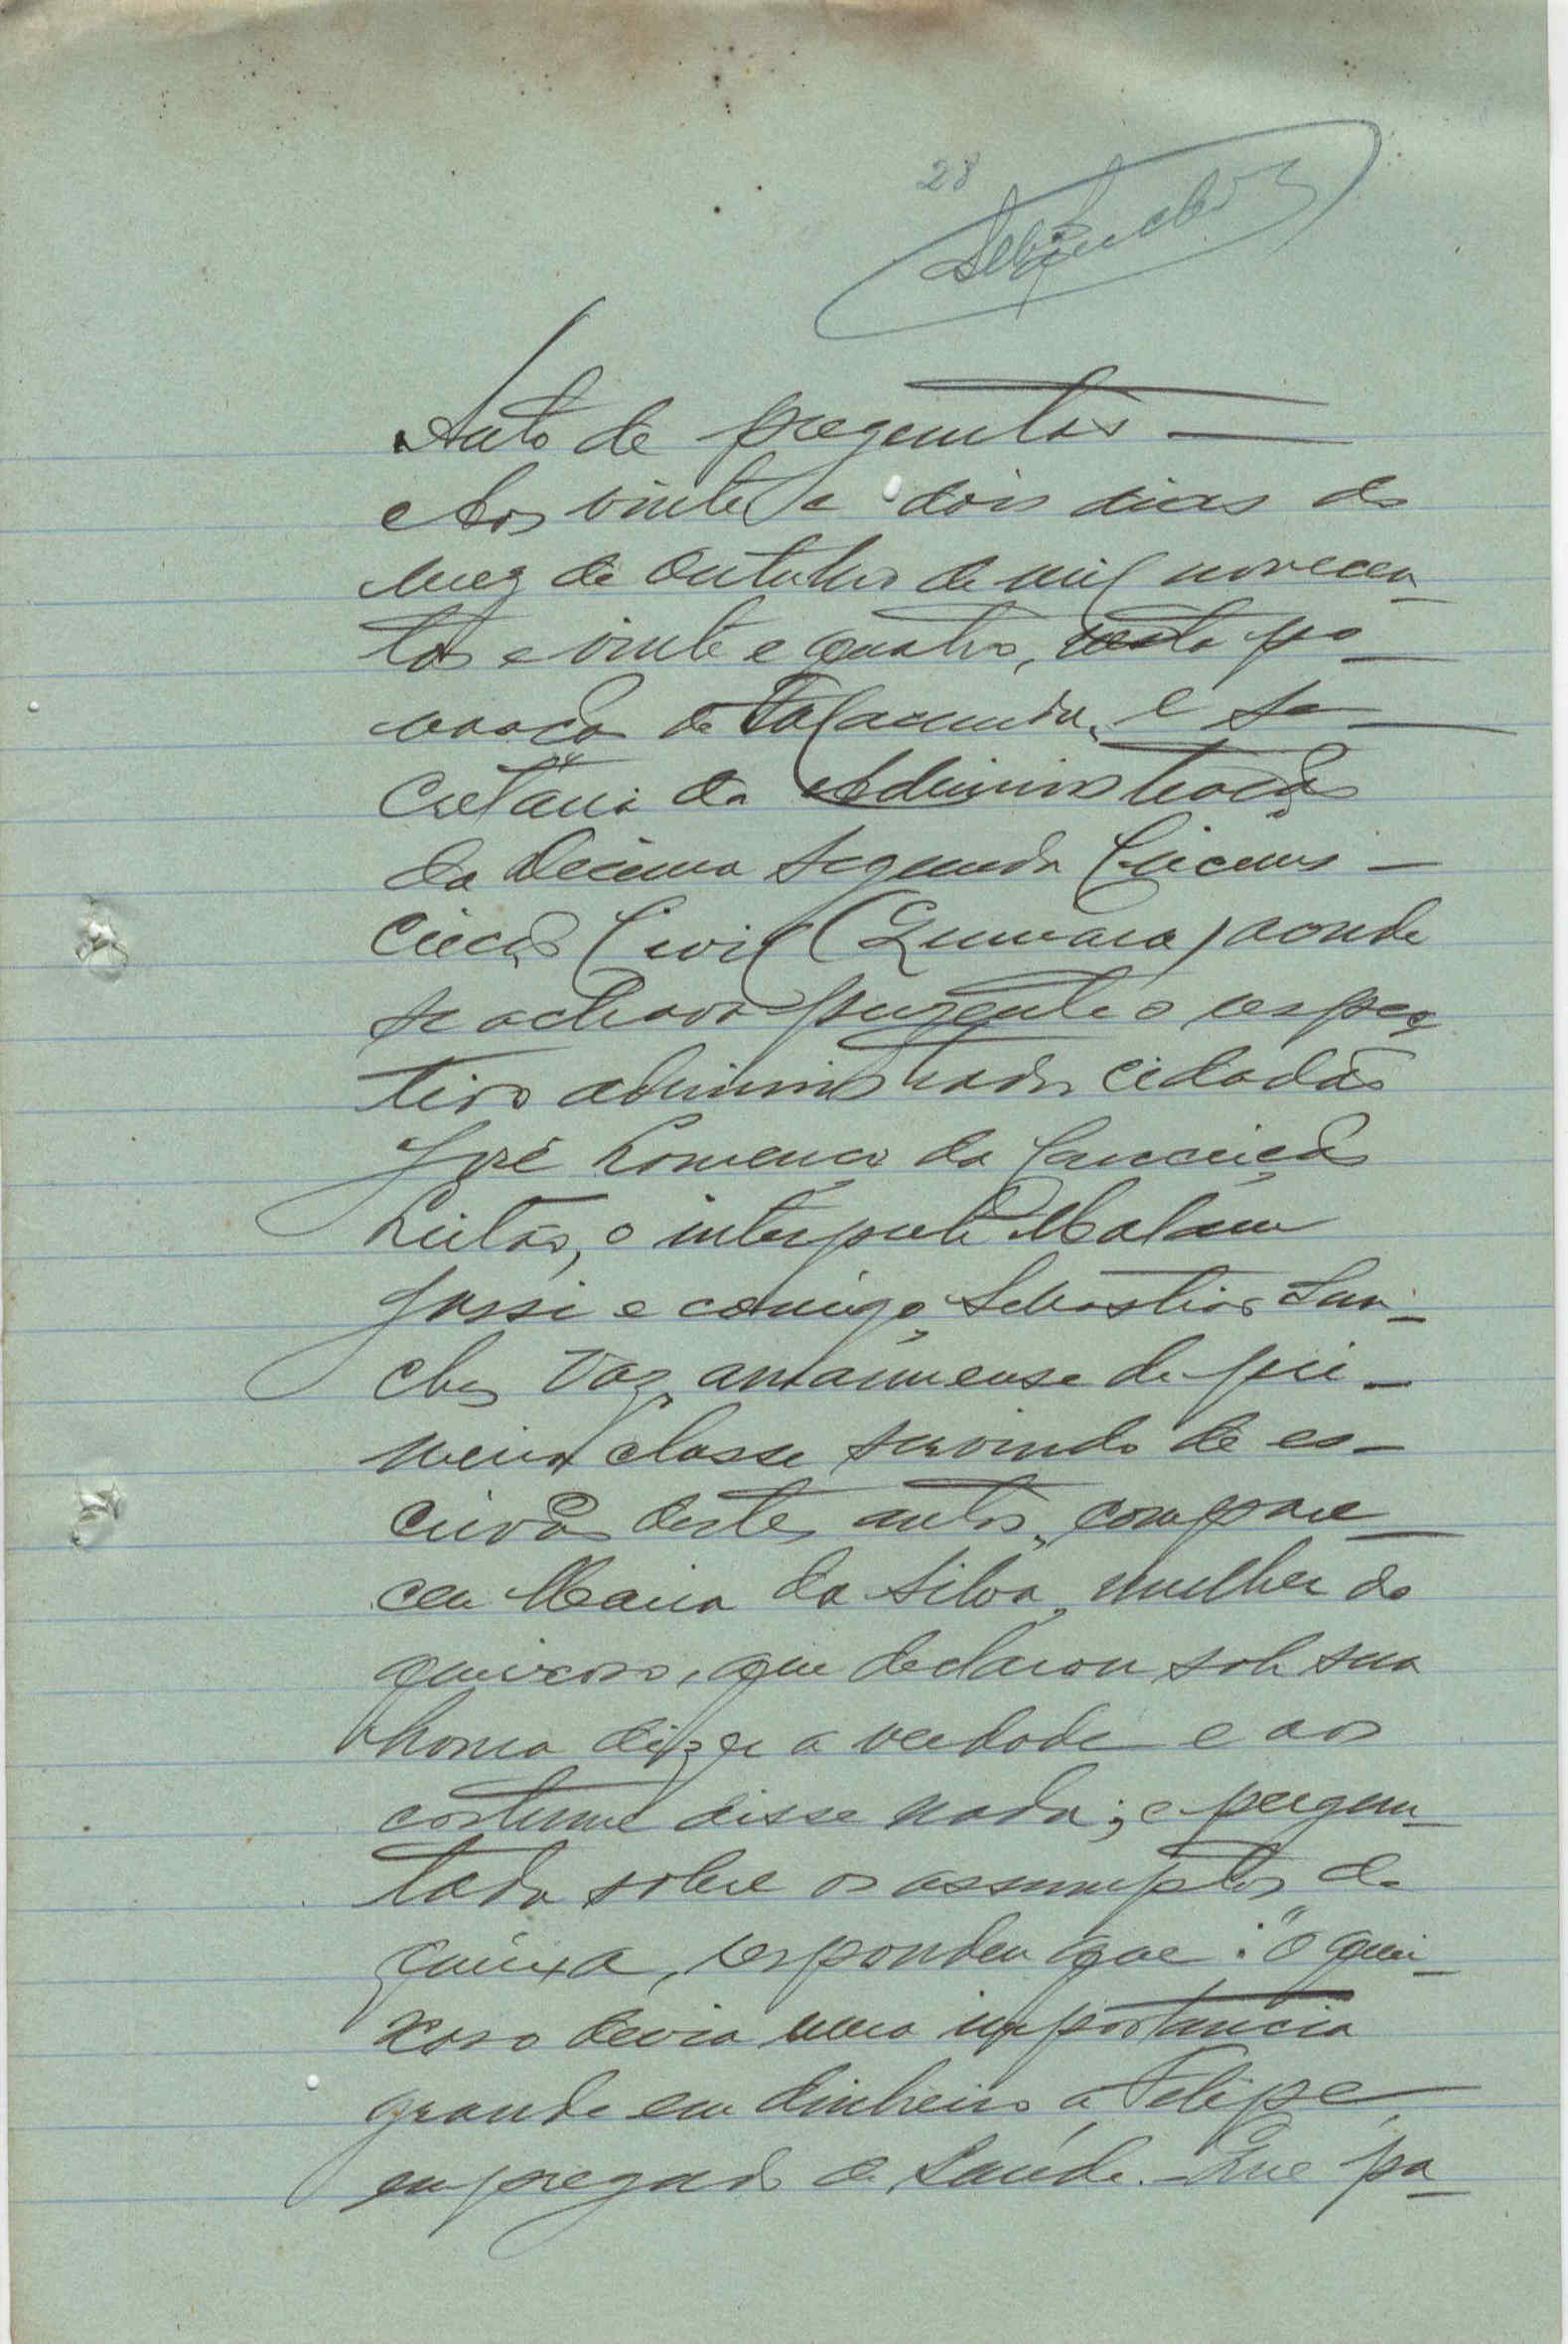 28
Auto de preguntas —
Aos vinte e dois dias do
mez de Outubro de mil novecen-
tos e vinte e quatro, nesta po-
voação de e se-
cretaria da Administração
da Decima Segunda Circuns-
crição Civil (Quinara) aonde
se achava presente o respec-
tivo administrador cidadão
José Lourenço da Conceição
Leitão, o interprete Malam
Jassi e comigo, Sebastião San-
ches Vaz, amanuense de pri-
meira classe servindo de es-
crivão destes autos, compare-
ceu Maria da Silva, mulher do
queixoso, que declarou sob sua
honra dizer a verdade e aos
costume disse nada; e pergun-
tada sobre os assumptos da
queixa, respondeu que: "o quei-
xoso devia uma importancia
grande em dinheiro a Felipe,
empregado da Saúde. Que pa-